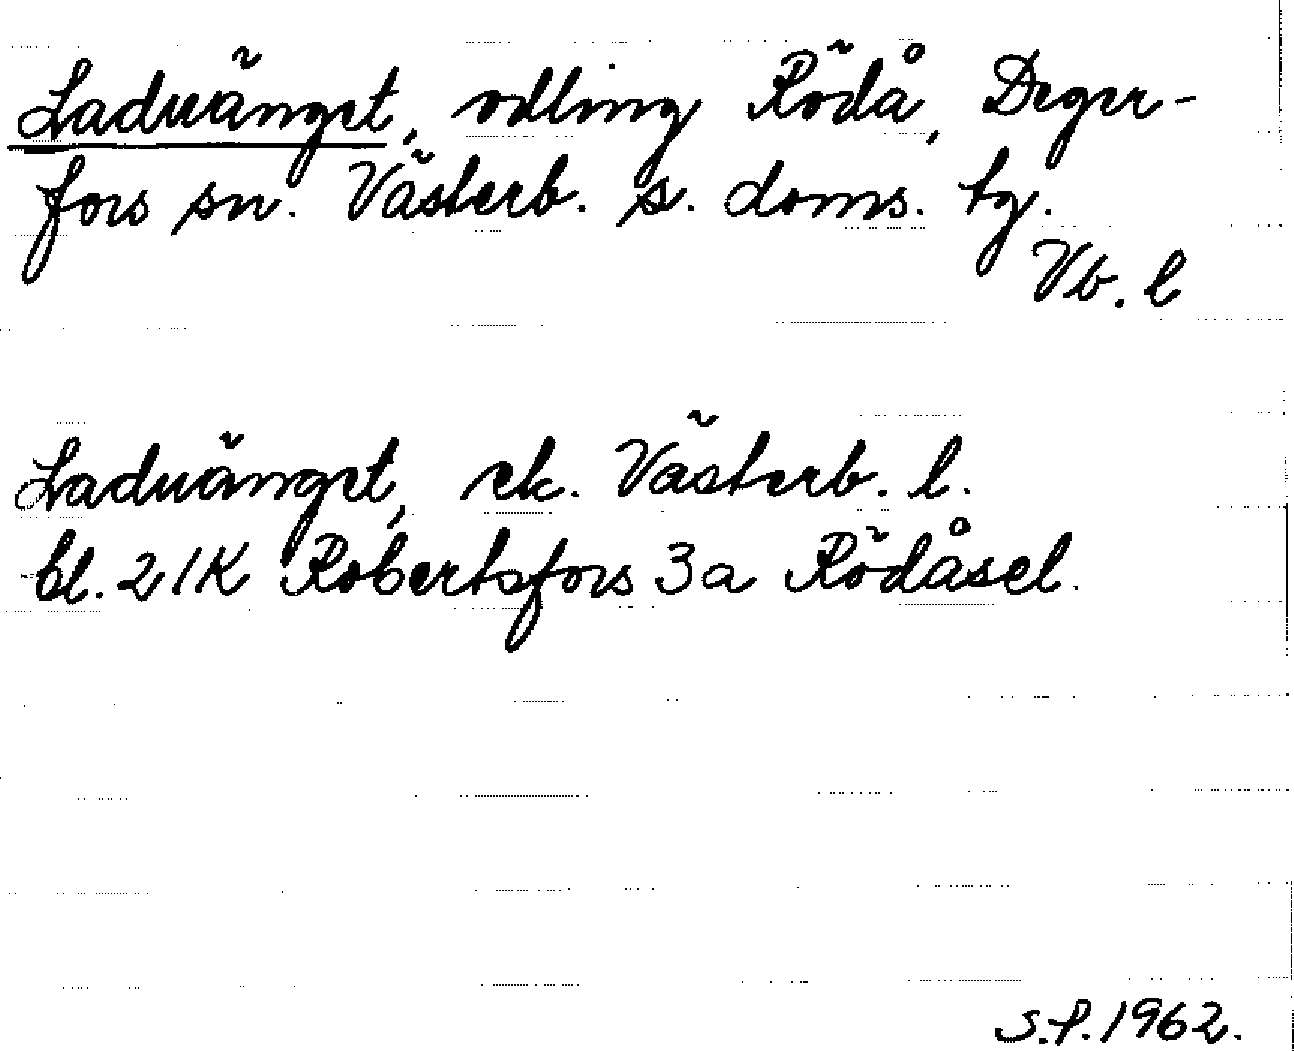 Laduänget, odling Rödå, Deger-
fors sn. Västerb. s. doms. tg.
Vb. l
Laduänget, ek. Västerb. l.
bl. 21K Robertsfors 3a Rödåsel.
S.f. 1962.